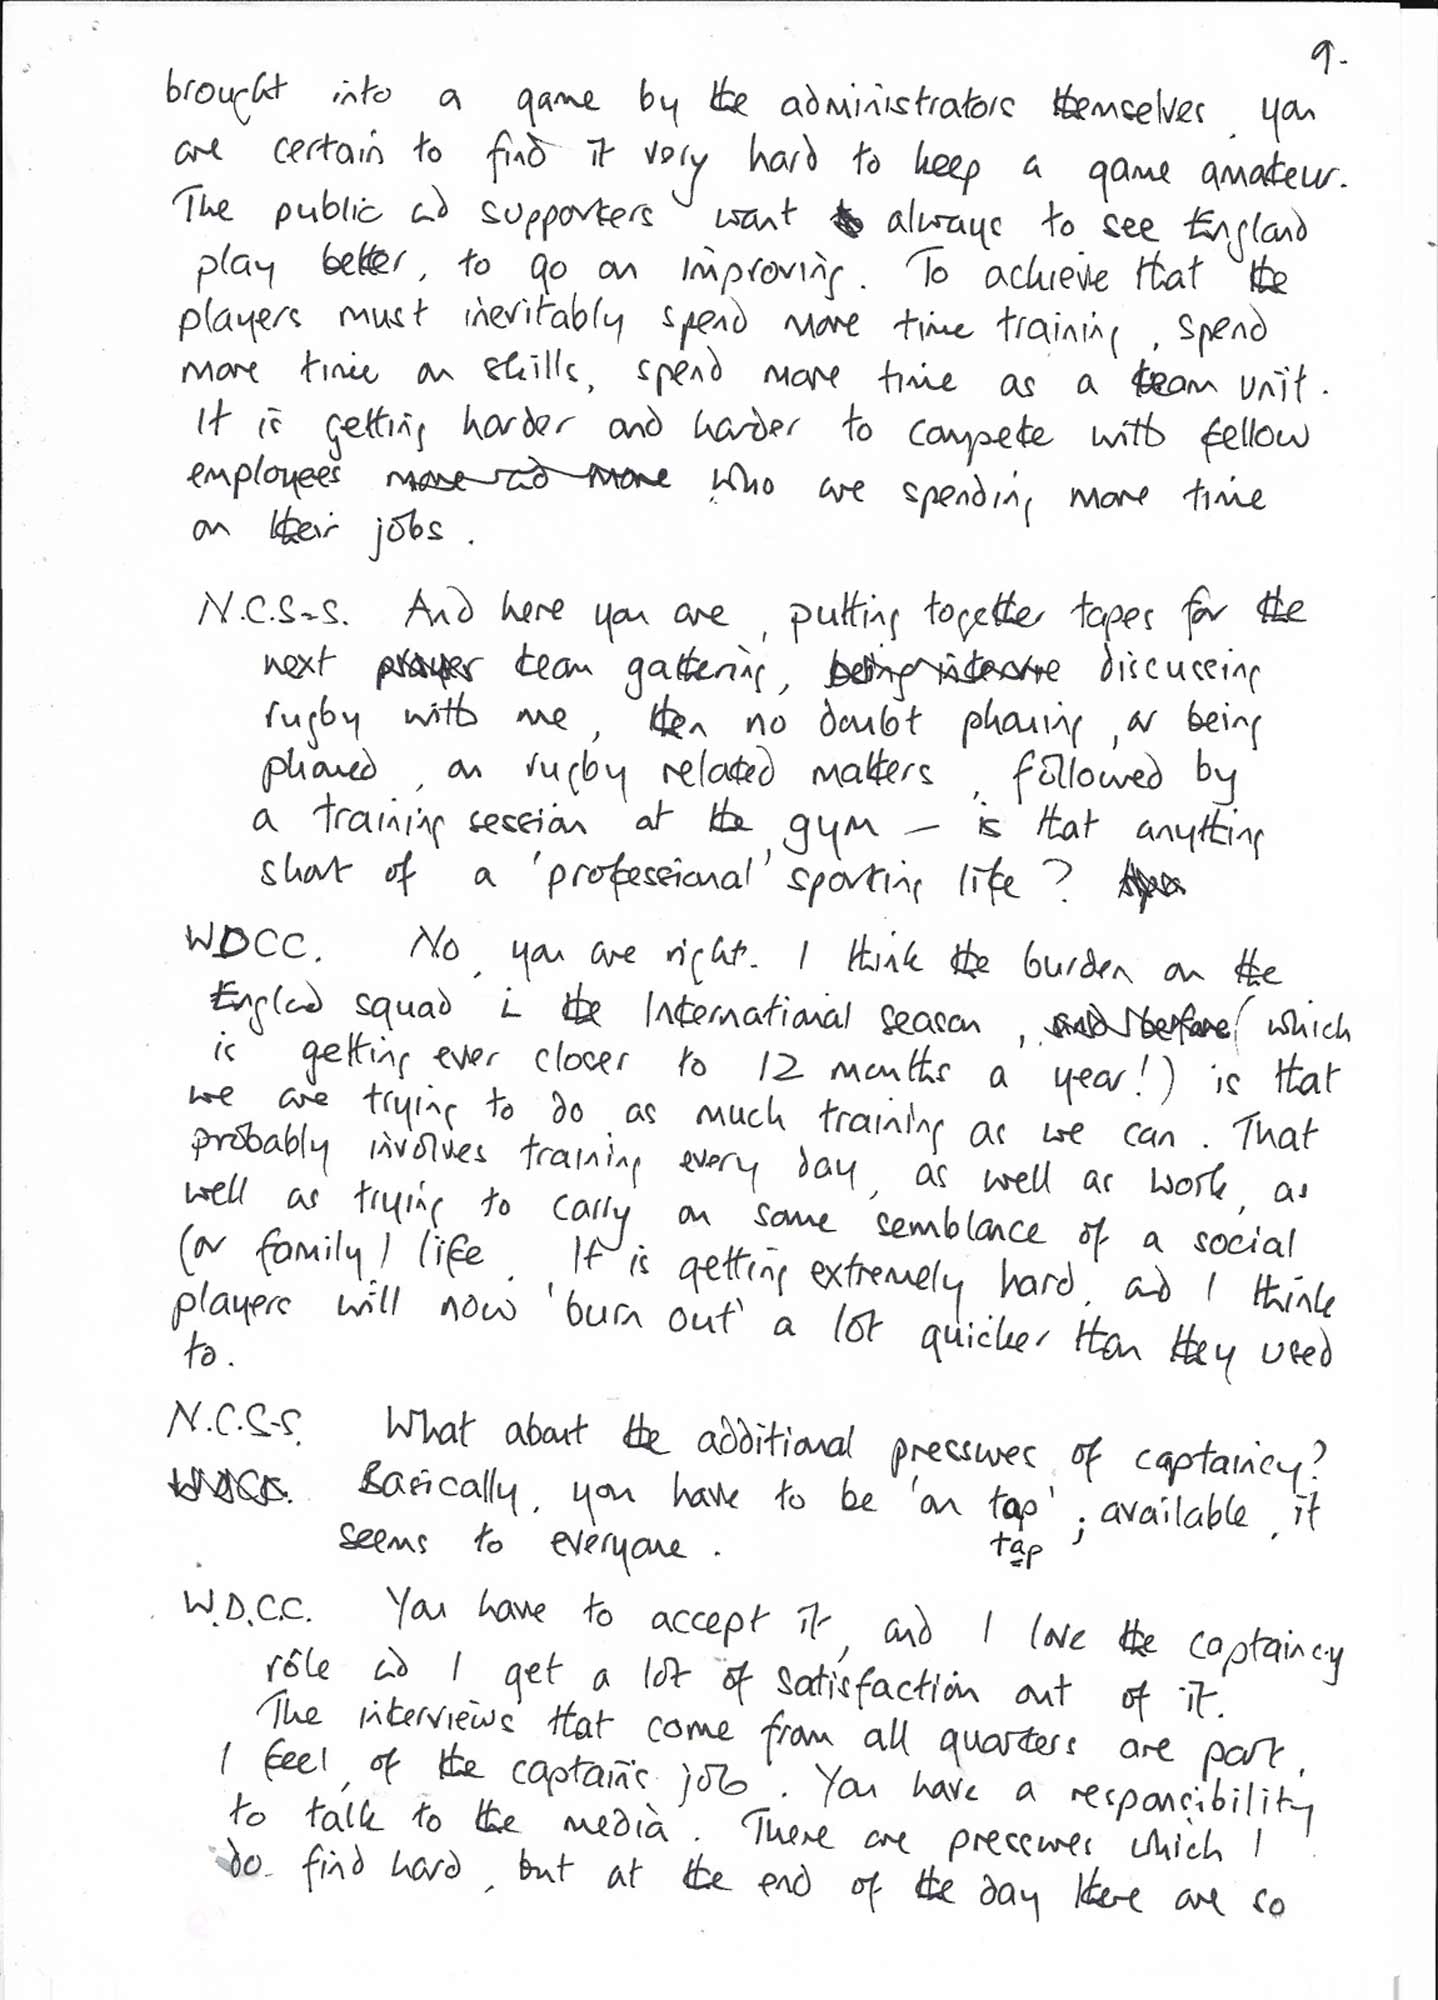 9.
brought into a game by the administrators themselves, you
are certain to find it very hard to keep a game amateur.
The public and supporters want always to see England
play better, to go on improving. To achieve that the
players must inevitably spend more time training, spend
more time on skills, spend more time as a team unit.
It is getting harder and harder to compete with fellow
employees more and more who are spending more time
on their jobs.
N.C.S-S. And here you are, putting together tapes for the
next player team gathering, being interv discussing
rugby with me, then no doubt phoning, or being
phoned, on rugby related matters, followed by
a training session at the gym — is that anything
short of a 'professional' sporting life?
WDCC. No, you are right. I think the burden on the
England squad in the International season, and before (which
is getting ever closer to 12 months a year!) is that
we are trying to do as much training as we can. That
probably involves training every day, as well as work, as
well as trying to carry on some semblance of a social
(or family) life. It is getting extremely hard, and I think
players will now 'burn out' a lot quicker than they used
to.
N.C.S-S. What about the additional pressures of captaincy?
WDCC. Basically, you have to be 'on tap'; available, it
tap
seems to everyone.
W.D.C.C. You have to accept it, and I love the captaincy
rôle and I get a lot of satisfaction out of it.
The interviews that come from all quarters are part,
I feel, of the captain's job. You have a responsibility
to talk to the media. There are pressures which I
do find hard, but at the end of the day there are so